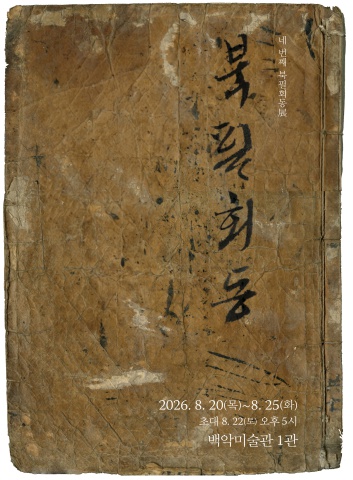 네 번째 북필회동展
북필회동
2026. 8. 20(목)~8. 25(화)
초대 8. 22(토) 오후 5시
백악미술관 1관